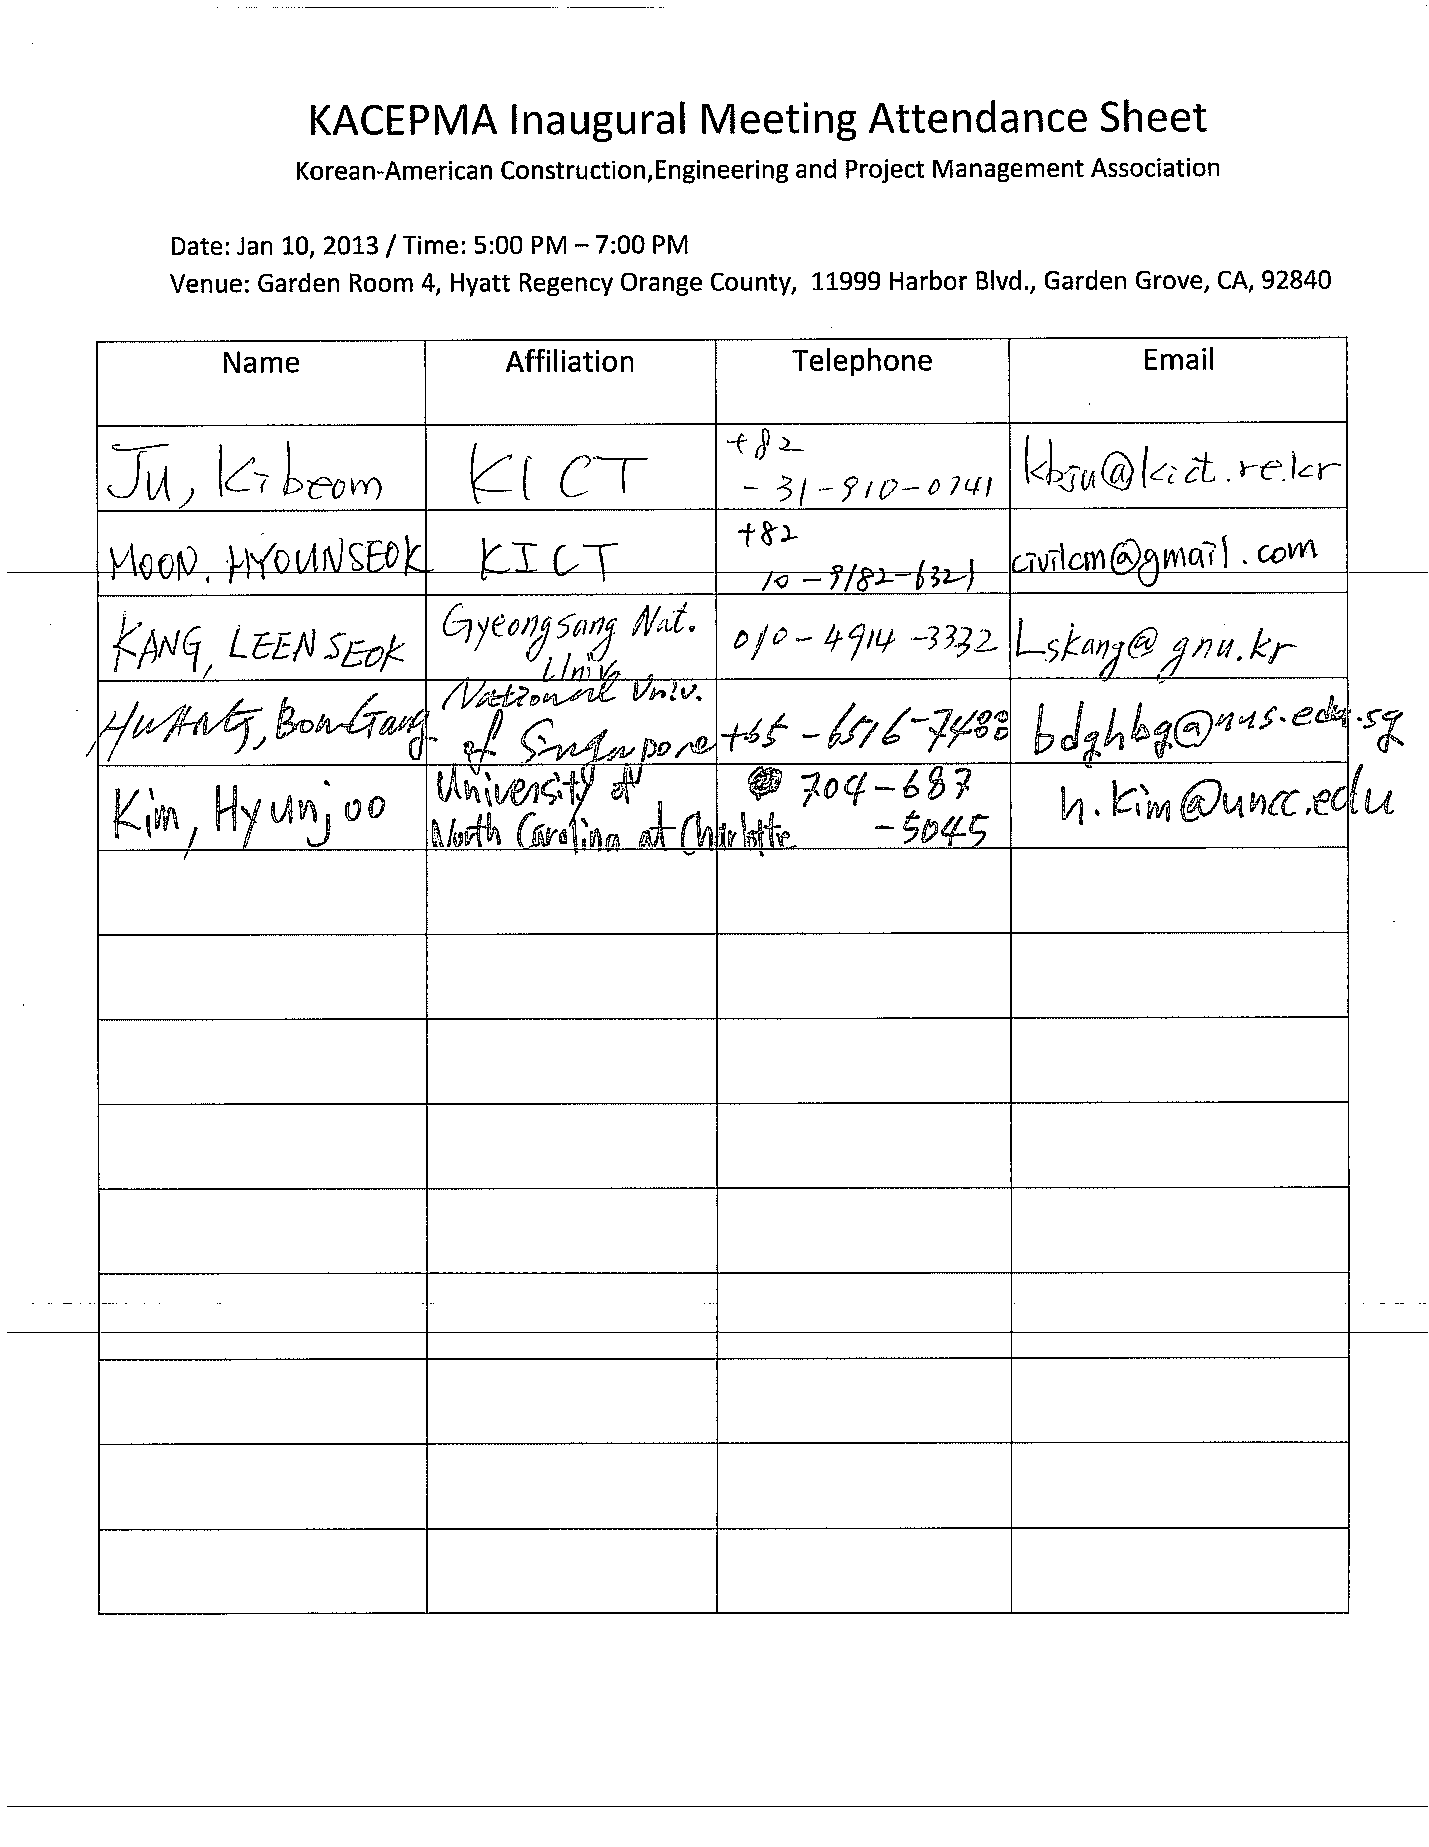 KACEPMA Inaugural Meeting Attendance Sheet
Korean-American Construction,Engineering and Project Management Association
Date: Jan 10, 2013 / Time: 5:00 PM – 7:00 PM
Venue: Garden Room 4, Hyatt Regency Orange County, 11999 Harbor Blvd., Garden Grove, CA, 92840
Name Affiliation Telephone Email
Ju, Kibeom KICT +82
-31-910-0741 kbju@kict.re.kr
MOON, HYOUNSEOK KICT +82
10-9182-6321 civilcm@gmail.com
KANG, LEENSEOK Gyeongsang Nat.
Univ. 010-4914-3332 Lskang@gnu.kr
HWANG, BonGang National Univ.
of Singapore +65-6516-7488 bdghbg@nus.edu.sg
Kim, Hyunjoo University of
North Carolina at Charlotte 704-687
-5045 h.kim@uncc.edu